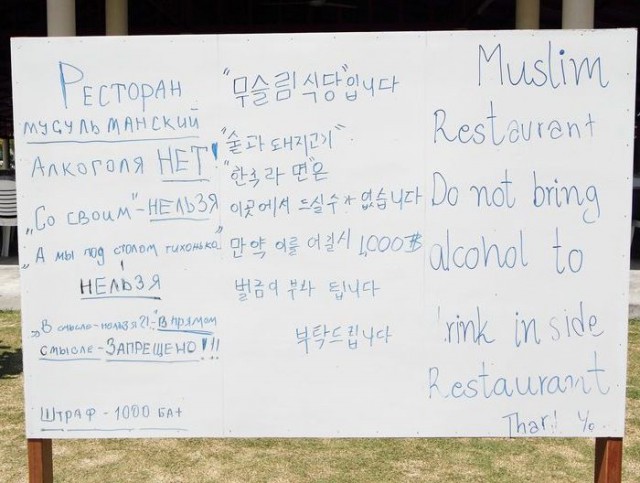 Ресторан
мусульманский
Алкоголя НЕТ!
"Со своим" - НЕЛЬЗЯ
"А мы под столом тихонько"
НЕЛЬЗЯ
"В смысле - нельзя?!" - В прямом
смысле - ЗАПРЕЩЕНО!!!
Штраф - 1000 бат
"무슬림 식당"입니다
"술과 돼지고기"
"한국라면"은
이곳에서 드실수가 없습니다
만약 이를 어길시 1,000฿
벌금이 부과 됩니다
부탁드립니다
Muslim
Restaurant
Do not bring
alcohol to
rink inside
Restaurant